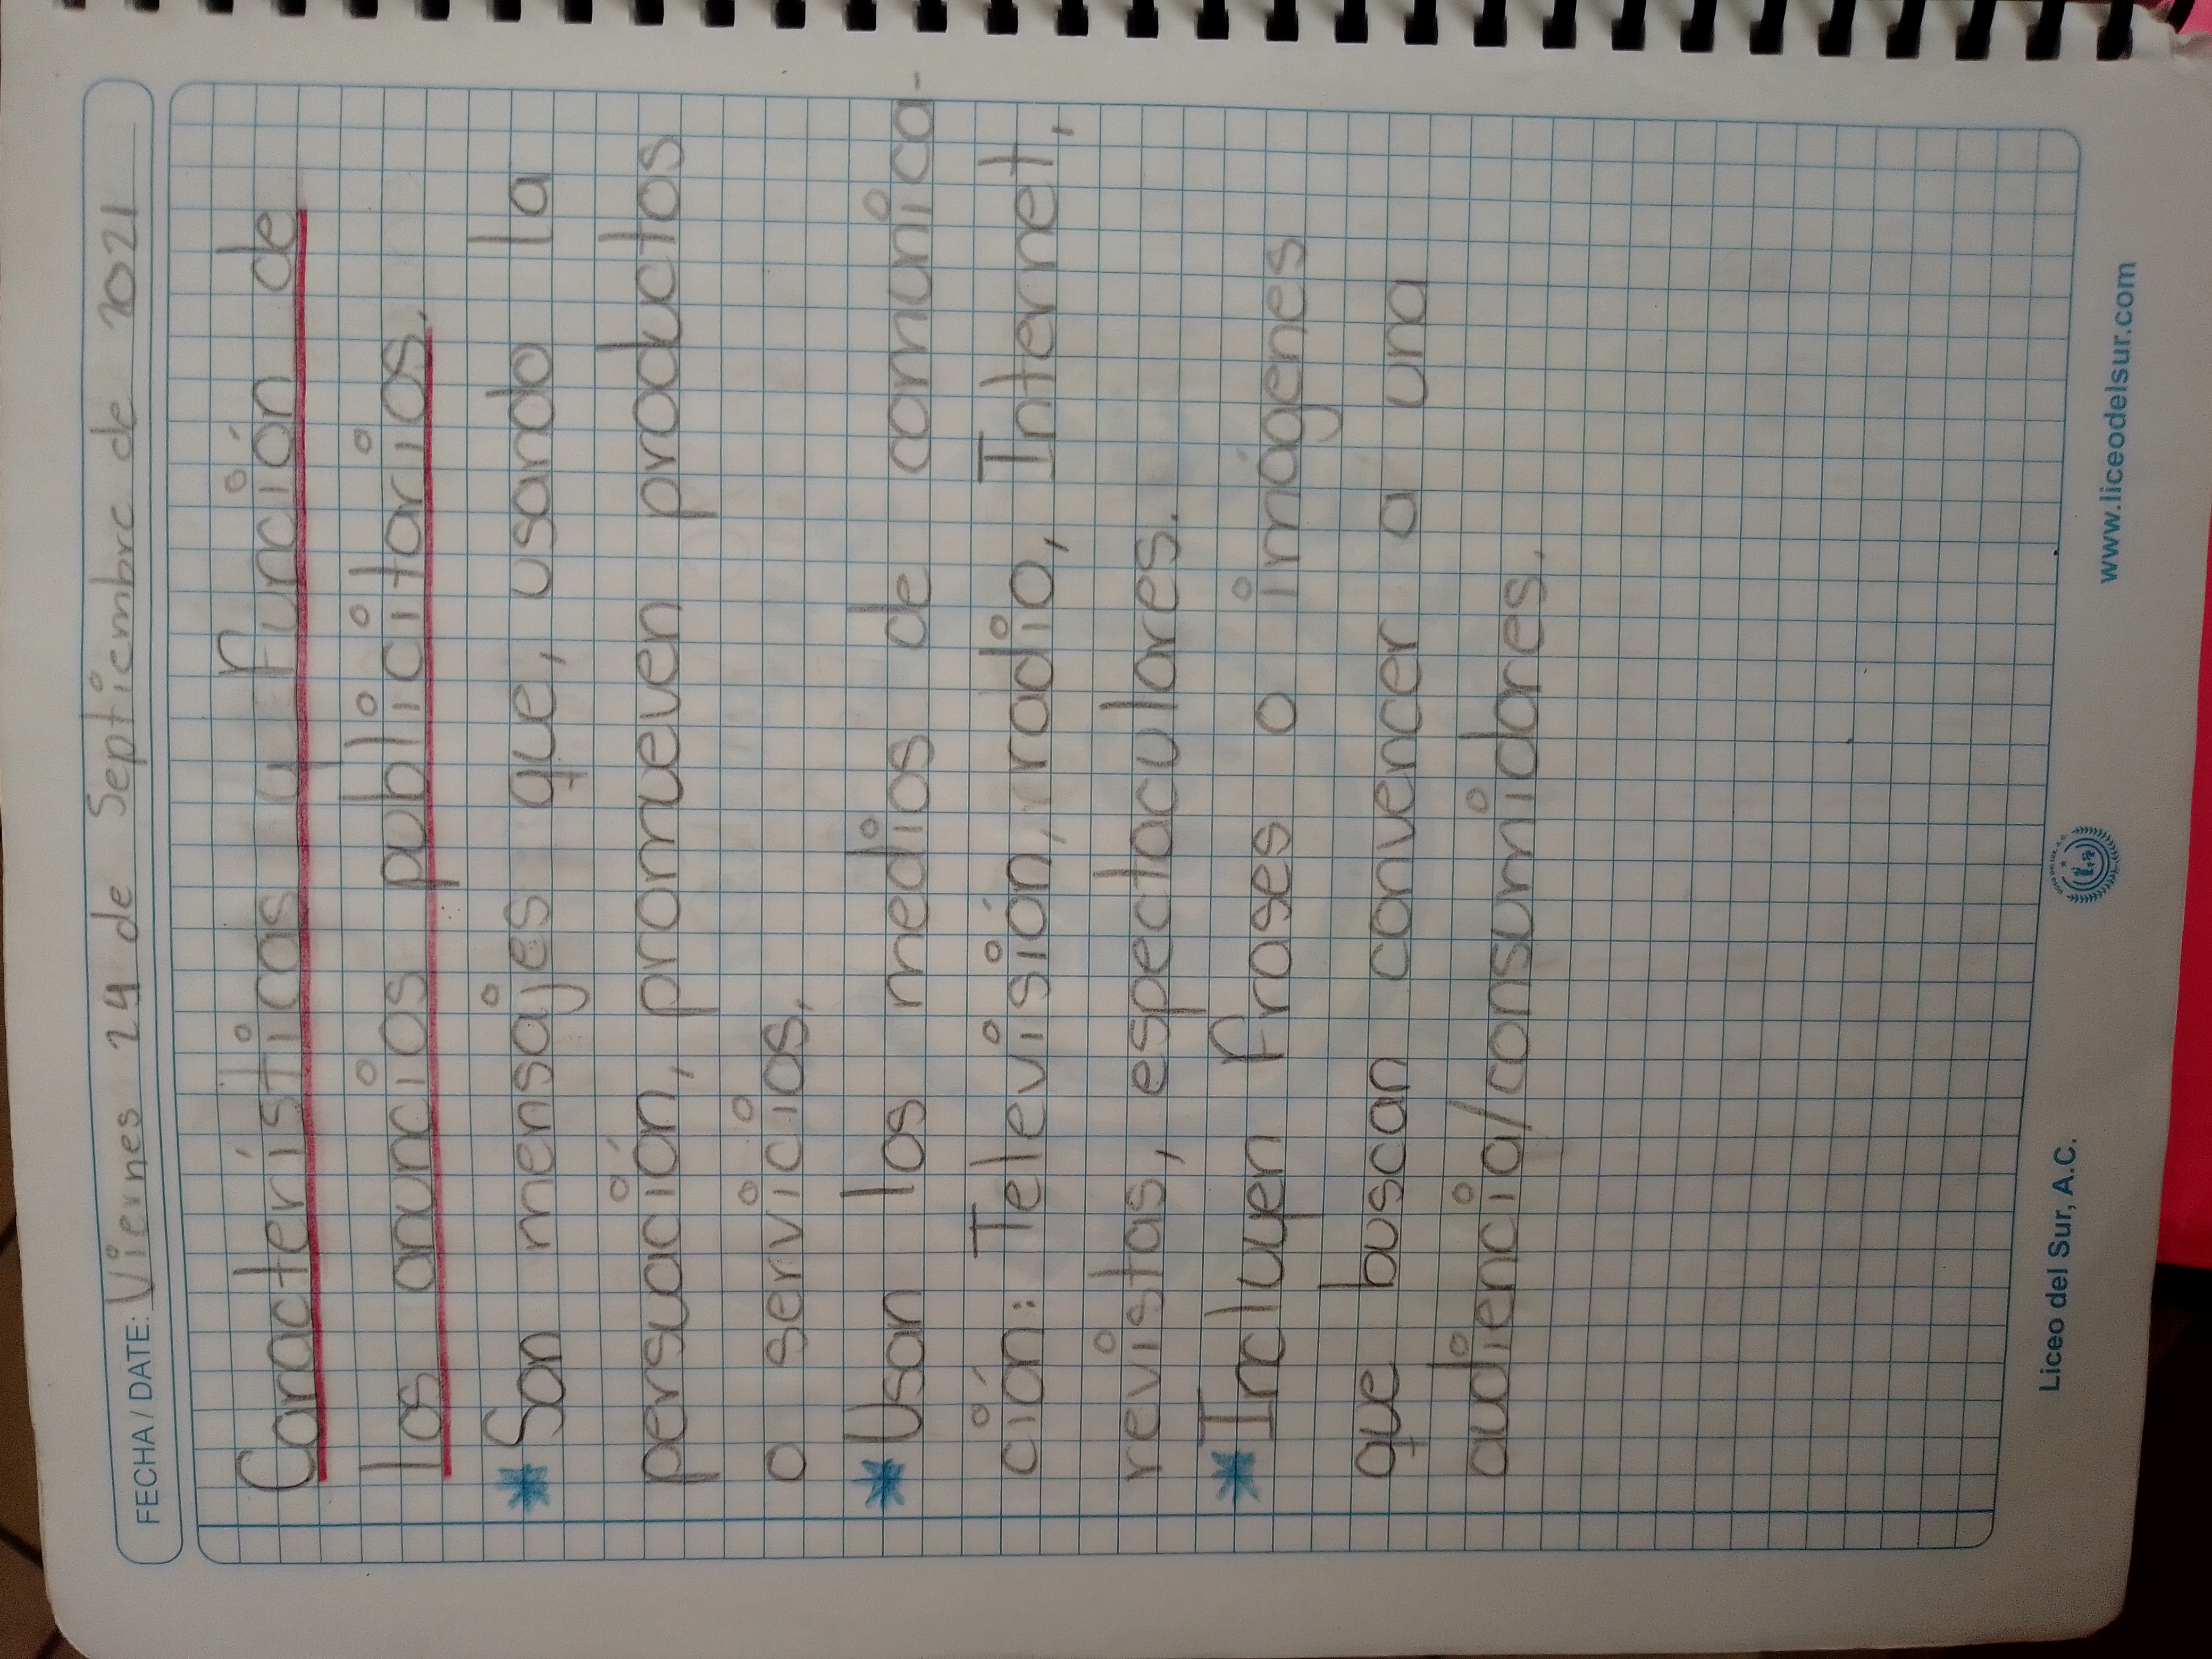 FECHA / DATE: Viernes 24 de Septiembre de 2021
Características y función de
los anuncios publicitarios.
* Son mensajes que, usando la
persuación, promueven productos
o servicios.
* Usan los medios de comunica-
ción: Televisión, radio, Internet,
revistas, espectaculares.
* Incluyen frases o imágenes
que buscan convencer a una
audiencia/consumidores.
Liceo del Sur, A.C.
www.liceodelsur.com